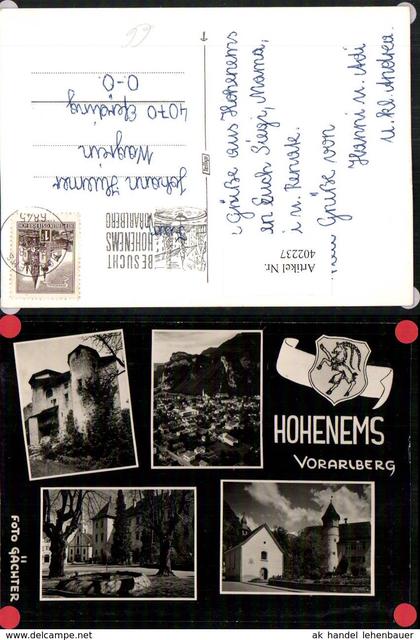 66
Grüße aus Hohenems
an Euch Siegi, Mama,
u. Renate.
Grüße von
Hanni u. Adi
u. kl. Andrea.
BESUCHT
HOHENEMS
VORARLBERG
6845
Johann
Wagrein
4070 Eferding
O.-Ö.
Artikel Nr.
402237
HOHENEMS
VORARLBERG
FOTO GÄCHTER
ak handel lehenbauer